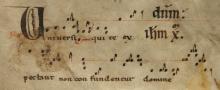 dñm:
Universi qui te ex ihm x̄.
pectant non con fundentur domine